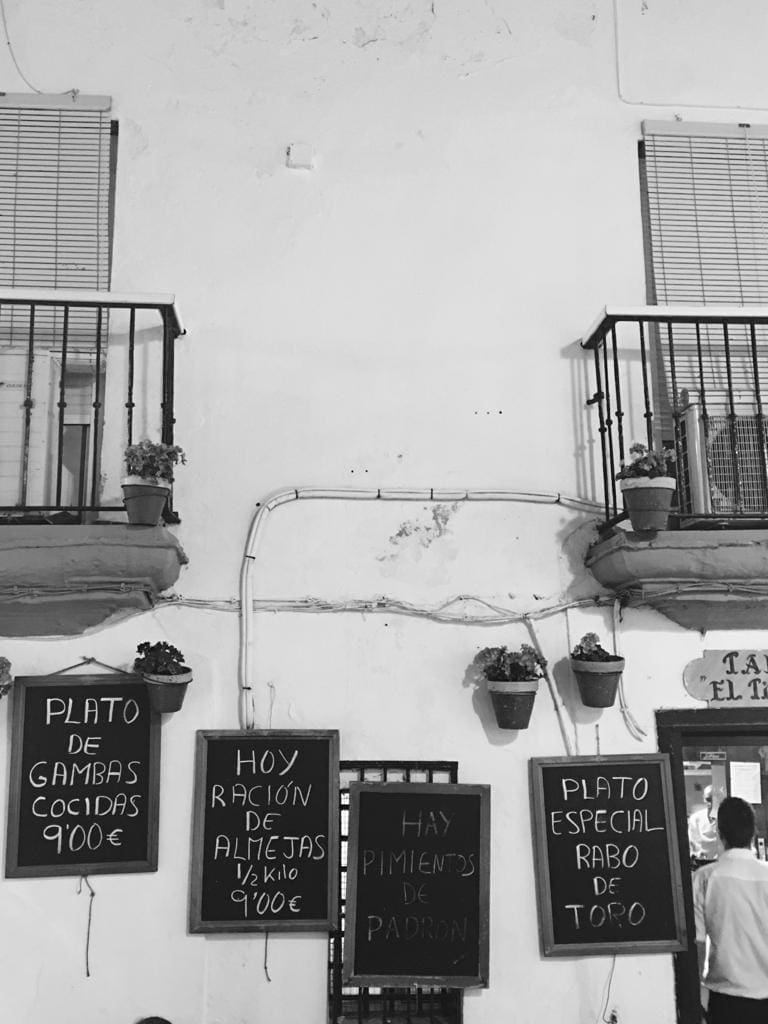 PLATO
DE
GAMBAS
COCIDAS
9'00€
HOY
RACIÓN
DE
ALMEJAS
1/2 KILO
9'00€
HAY
PIMIENTOS
DE
PADRON
PLATO
ESPECIAL
RABO
DE
TORO
"EL